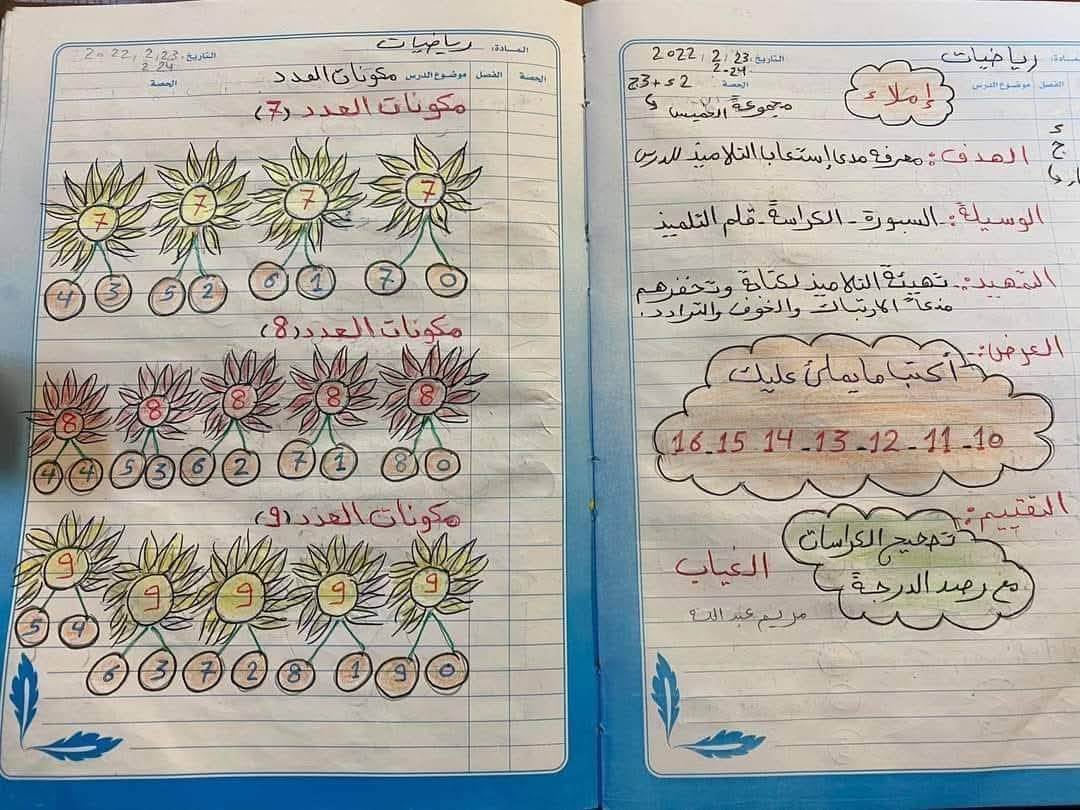 المـادة: رياضيات
التاريخ: 2022, 2, 23
2-24
الحصة
الفصل
موضوع الدرس
إملاء
الحصة
2 د + 3 ج
مجموعة الخميس
الهدف: معرفة مدى إستعاب التلاميذ للدرس
الوسيلة:- السبورة - الكراسة - قلم التلميذ
التمهيد:- تهيئة التلاميذ لكتابة وتحفزهم
الارتبات والخوف والترادد.
العرض:-
أكتب ما يملئ عليك
16-15-14-13-12-11-10
التقتييم:-
تصحيح الكراسات
مع رصد الدرجة
الغياب
مريم عبد الله
المـادة: رياضيات
التاريخ: 2022, 2, 23
2-24
الحصة الفصل موضوع الدرس مكونات العدد
الحصة
مكونات العدد (7)
7 7 7 7
4 3 5 2 6 1 7 0
مكونات العدد (8)
8 8 8 8 8
4 4 5 3 6 2 7 1 8 0
مكونات العدد (9)
9 9 9 9 9
5 4
6 3 7 2 8 1 9 0